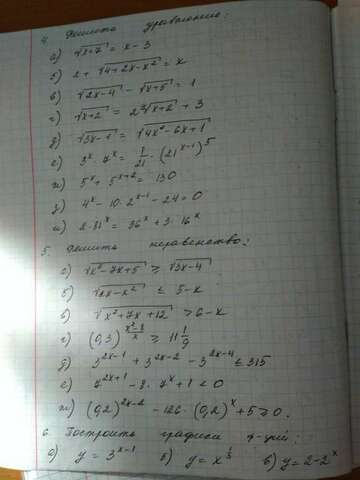 4. Решить уравнение:
а) √x+7 = x - 3
б) 2 + √4+2x-x² = x
в) √2x-4 - √x+5 = 1
г) √x+2 = 2 ³√x+2 + 3
д) √3x-1 = √4x²-6x+1
е) 3ˣ · 7ˣ = 1/21 · (21ˣ⁻¹)⁵
ж) 5ˣ + 5ˣ⁺² = 130
з) 4ˣ - 10·2ˣ⁻¹ - 24 = 0
и) 2·81ˣ = 36ˣ + 3·16ˣ
5. Решить неравенство:
а) √x²-7x+5 ≥ √3x-4
б) √2x-x² ≤ 5-x
в) √x²+7x+12 > 6-x
г) (0,3) ≥ 11 1/9
д) 3²ˣ⁻¹ + 3²ˣ⁻² - 3²ˣ⁻⁴ ≤ 315
е) 7²ˣ⁺¹ - 8·7ˣ + 1 < 0
ж) (0,2)²ˣ⁻² - 126·(0,2)ˣ + 5 ≥ 0.
6. Построить графики ф-ций:
а) y = 3ˣ⁻¹ б) y = x^(1/3) в) y = 2-2ˣ